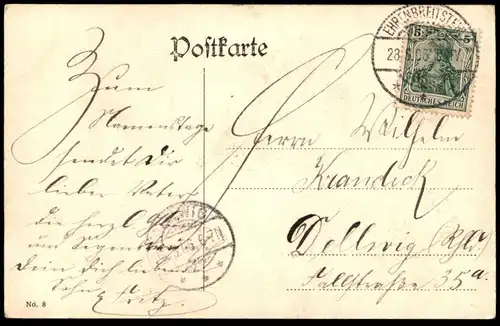 Postkarte
EHRENBREITSTEIN
28.5.05
5 5
DEUTSCHES REICH
Zum
Namenstage
sendet Dir
lieber Vater
die herzl. Glück
und Segenswün
Dein Dich liebender
Fritz.
Herrn Wilhelm
Krandick
Dellwig
Fallstraße 35a.
6-7N
No. 8